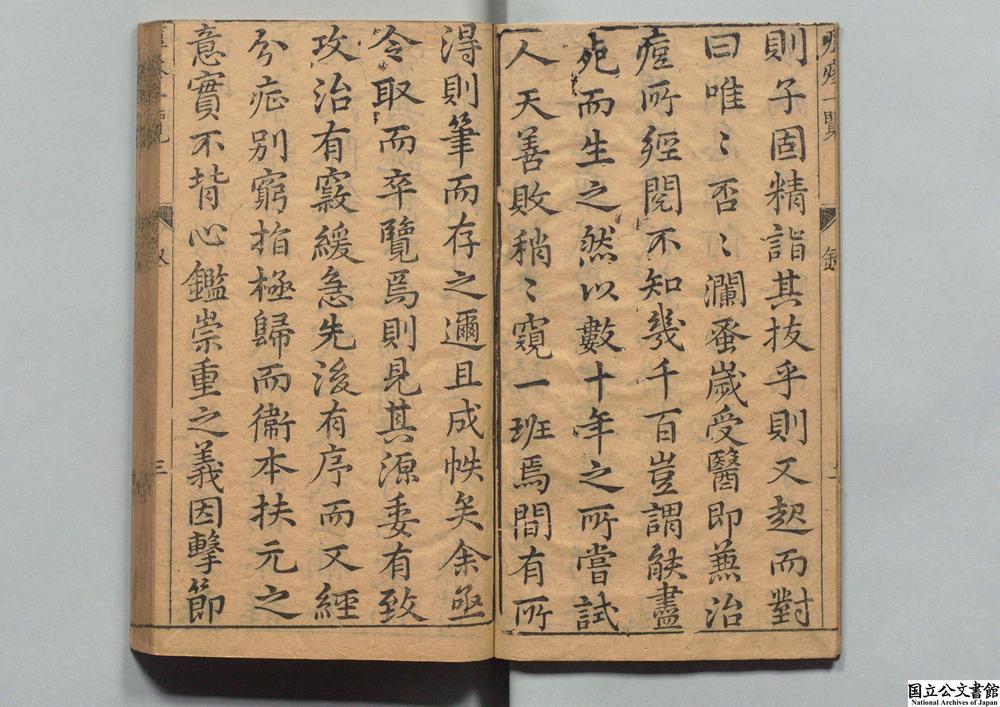 則子固精詣其技乎則又起而對
曰唯〻否〻瀾蚤歲受醫即兼治
痘所經閱不知幾千百豈謂能盡
死而生之然以數十年之所嘗試
人天善敗稍〻窺一班焉間有所
得則筆而存之邇且成帙矣余亟
令取而卒覽焉則見其源委有致
攻治有竅緩急先後有序而又經
分症別窮指極歸而衞本扶元之
意實不背心鑑崇重之義因擊節
三
国立公文書館
National Archives of Japan